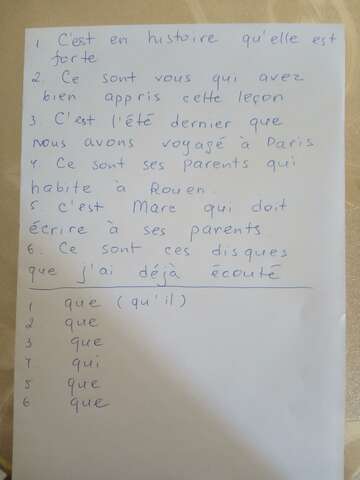 1. C'est en histoire qu'elle est
forte
2. Ce sont vous qui avez
bien appris cette leçon
3. C'est l'été dernier que
nous avons voyagé à Paris
4 Ce sont ses parents qui
habite à Rouen
5 C'est Marc qui doit
écrire à ses parents
6. Ce sont ces disques
que j'ai déjà écouté
1 que (qu'il)
2 que
3 que
4 qui
5 que
6 que